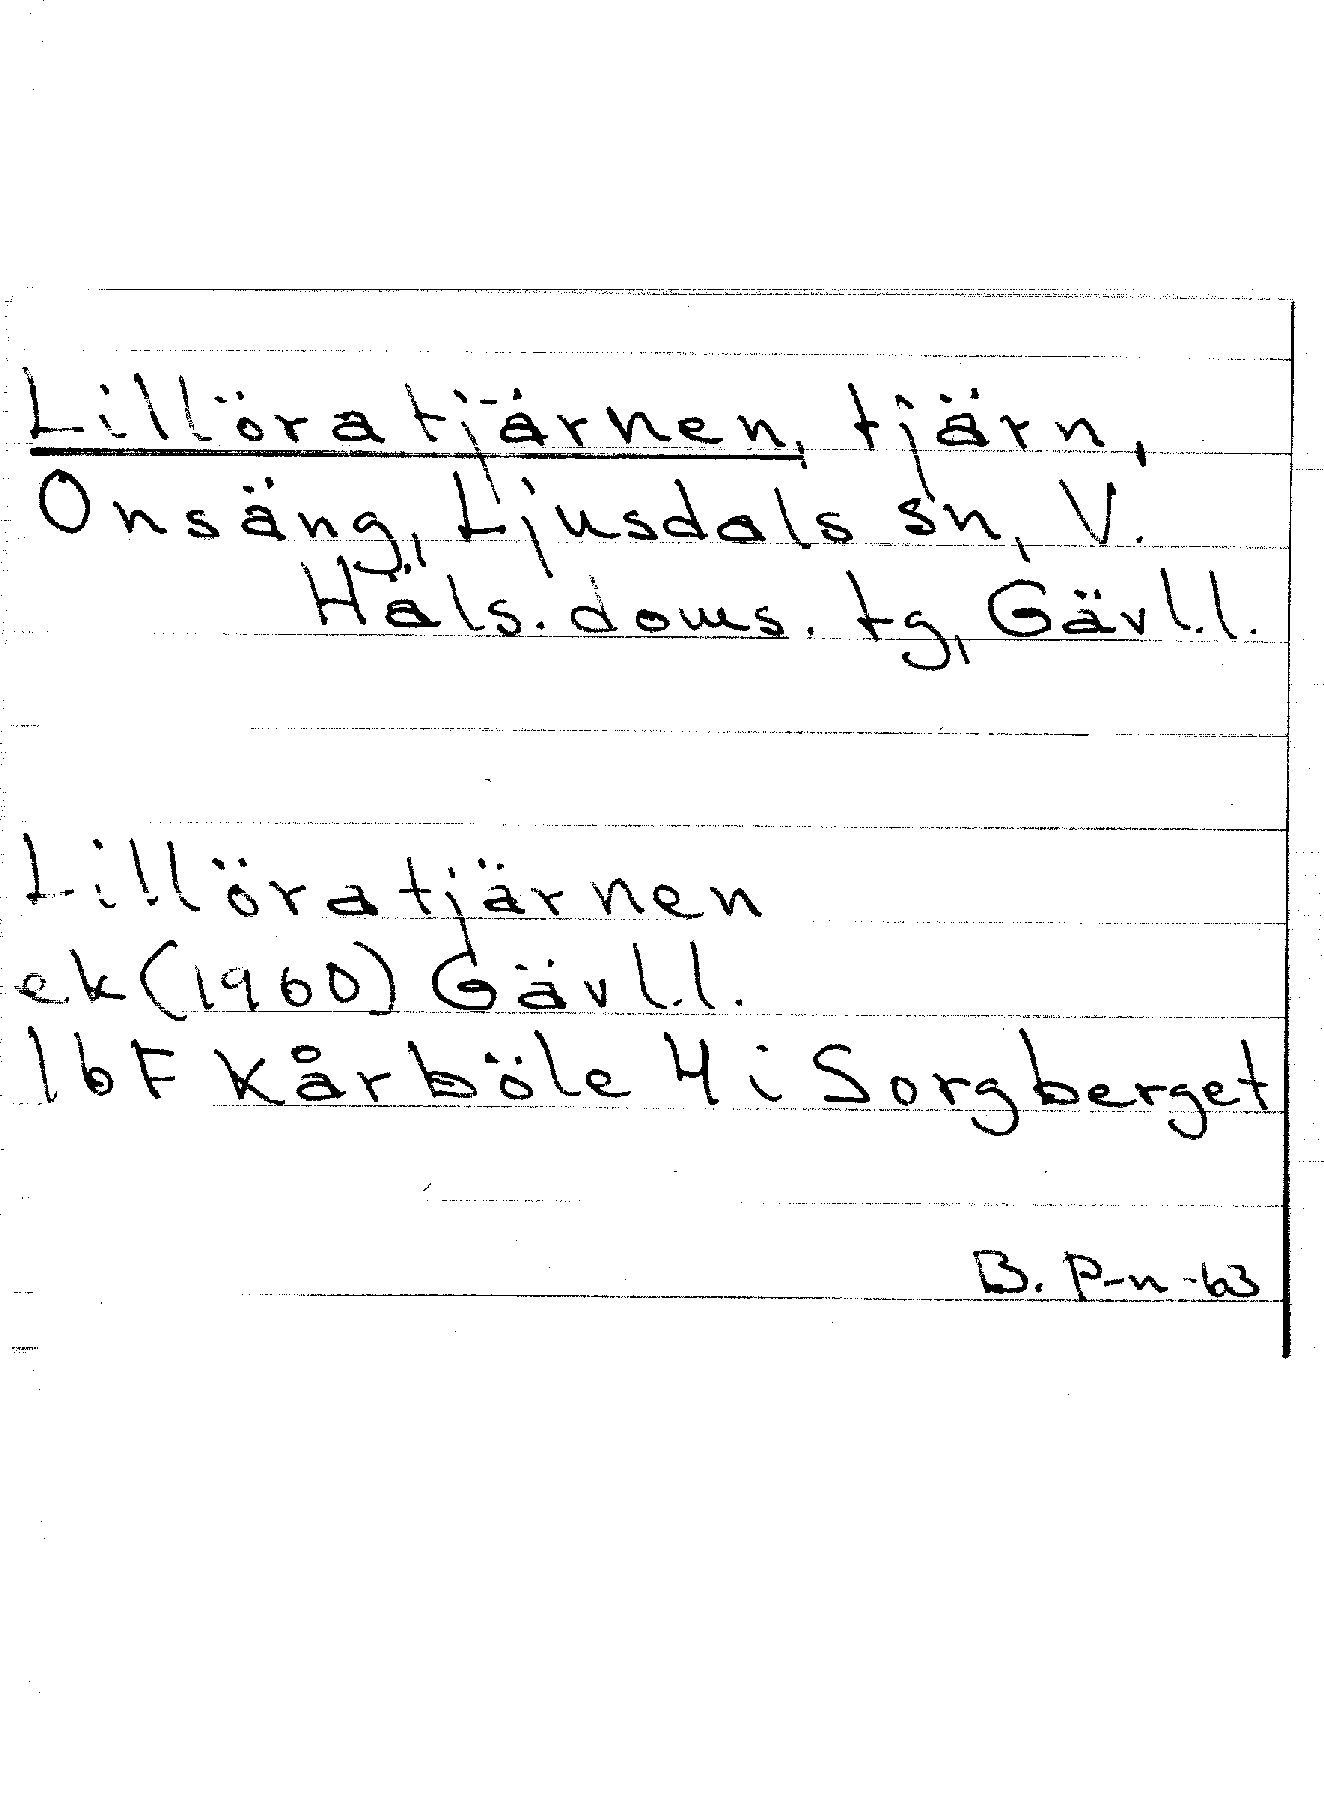 Lillöratjärnen, tjärn,
Onsäng, Ljusdals sn, V.
Häls. doms. tg, Gävl.l.
Lillöratjärnen
ek (1960) Gävl.l.
16F Kårböle 4 i Sorgberget
B. P-n -63